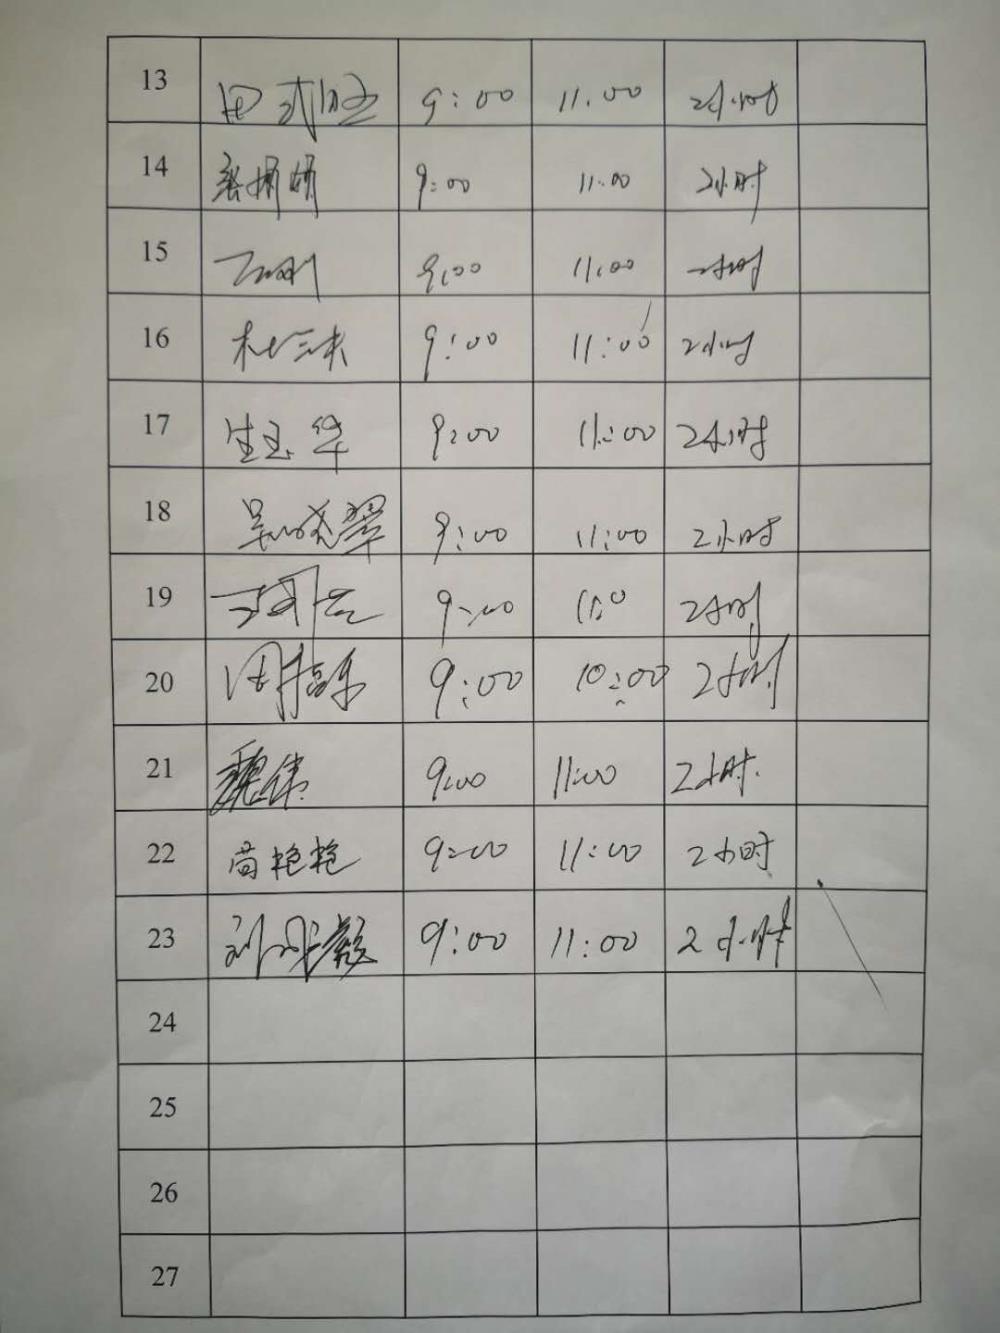 13 9:00 11.00 2小时
14 9:00 11:00 2小时
15 9:00 11:00 2小时
16 杜三夫 9:00 11:00 2小时
17 生玉华 9:00 11:00 2小时
18 吴晓翠 9:00 11:00 2小时
19 9:00 2小时
20 9:00 10:00 2小时
21 魏伟 9:00 11:00 2小时.
22 苗艳艳 9:00 11:00 2小时
23 刘 9:00 11:00 2小时
24
25
26
27